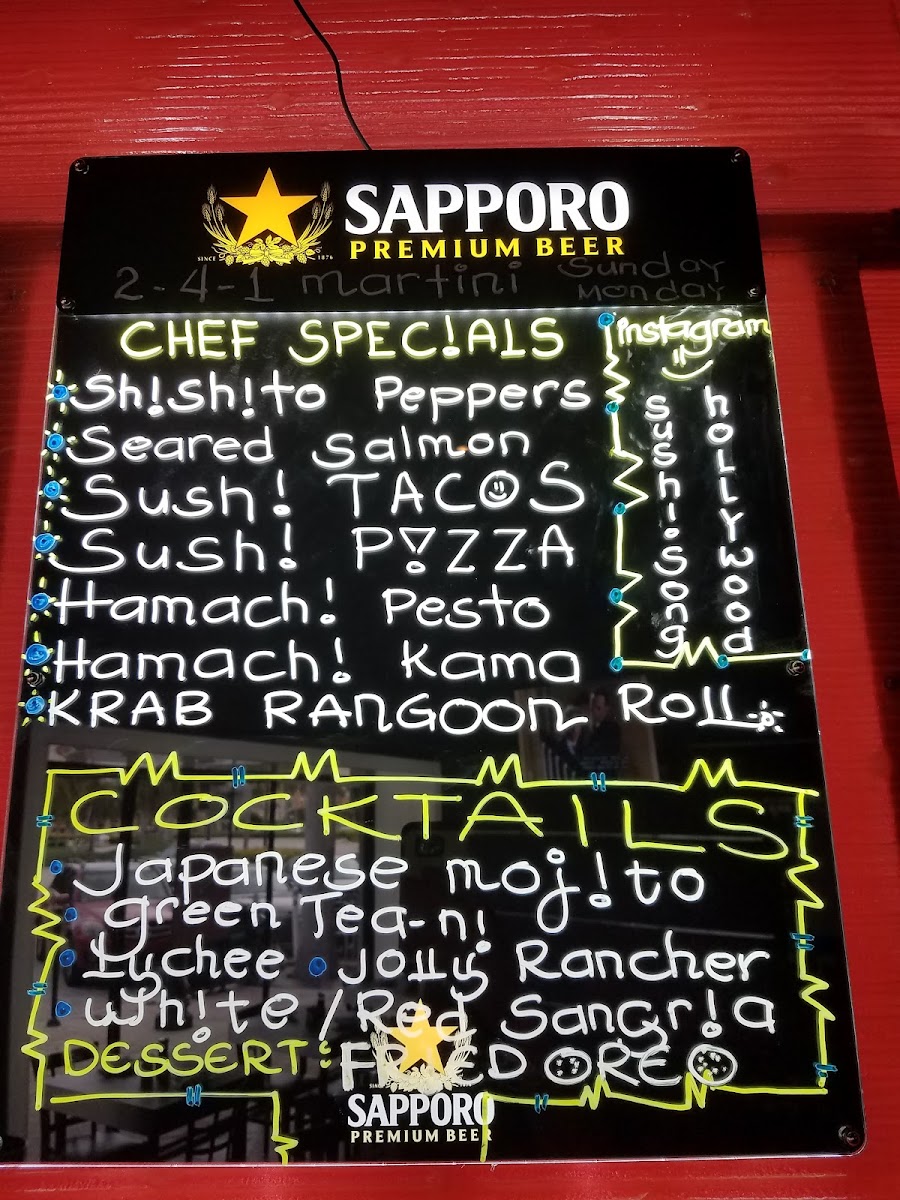 SAPPORO
PREMIUM BEER
SINCE 1876
2-4-1 martini Sunday
Monday
CHEF SPEC!ALS
Sh!sh!to Peppers
Seared Salmon
Sush! TACOS
Sush! P!ZZA
Hamach! Pesto
Hamach! Kama
KRAB RANGOON Roll
instagram
sushi.song
hollywood
COCKTAILS
Japanese moj!to
green Tea-n!
Lychee • Jolly Rancher
Wh!te / Red Sangr!a
DESSERT: FRIED OREO
SAPPORO
PREMIUM BEER